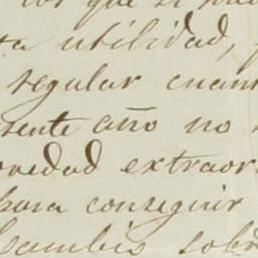 por que se
ta utilidad,
regular cuan
sente año no
ovedad extraor
para conseguir
cambio sobr